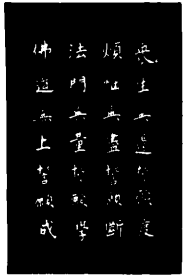 衆生無邊誓願度
煩惱無盡誓願斷
法門無量誓願學
佛道無上誓願成